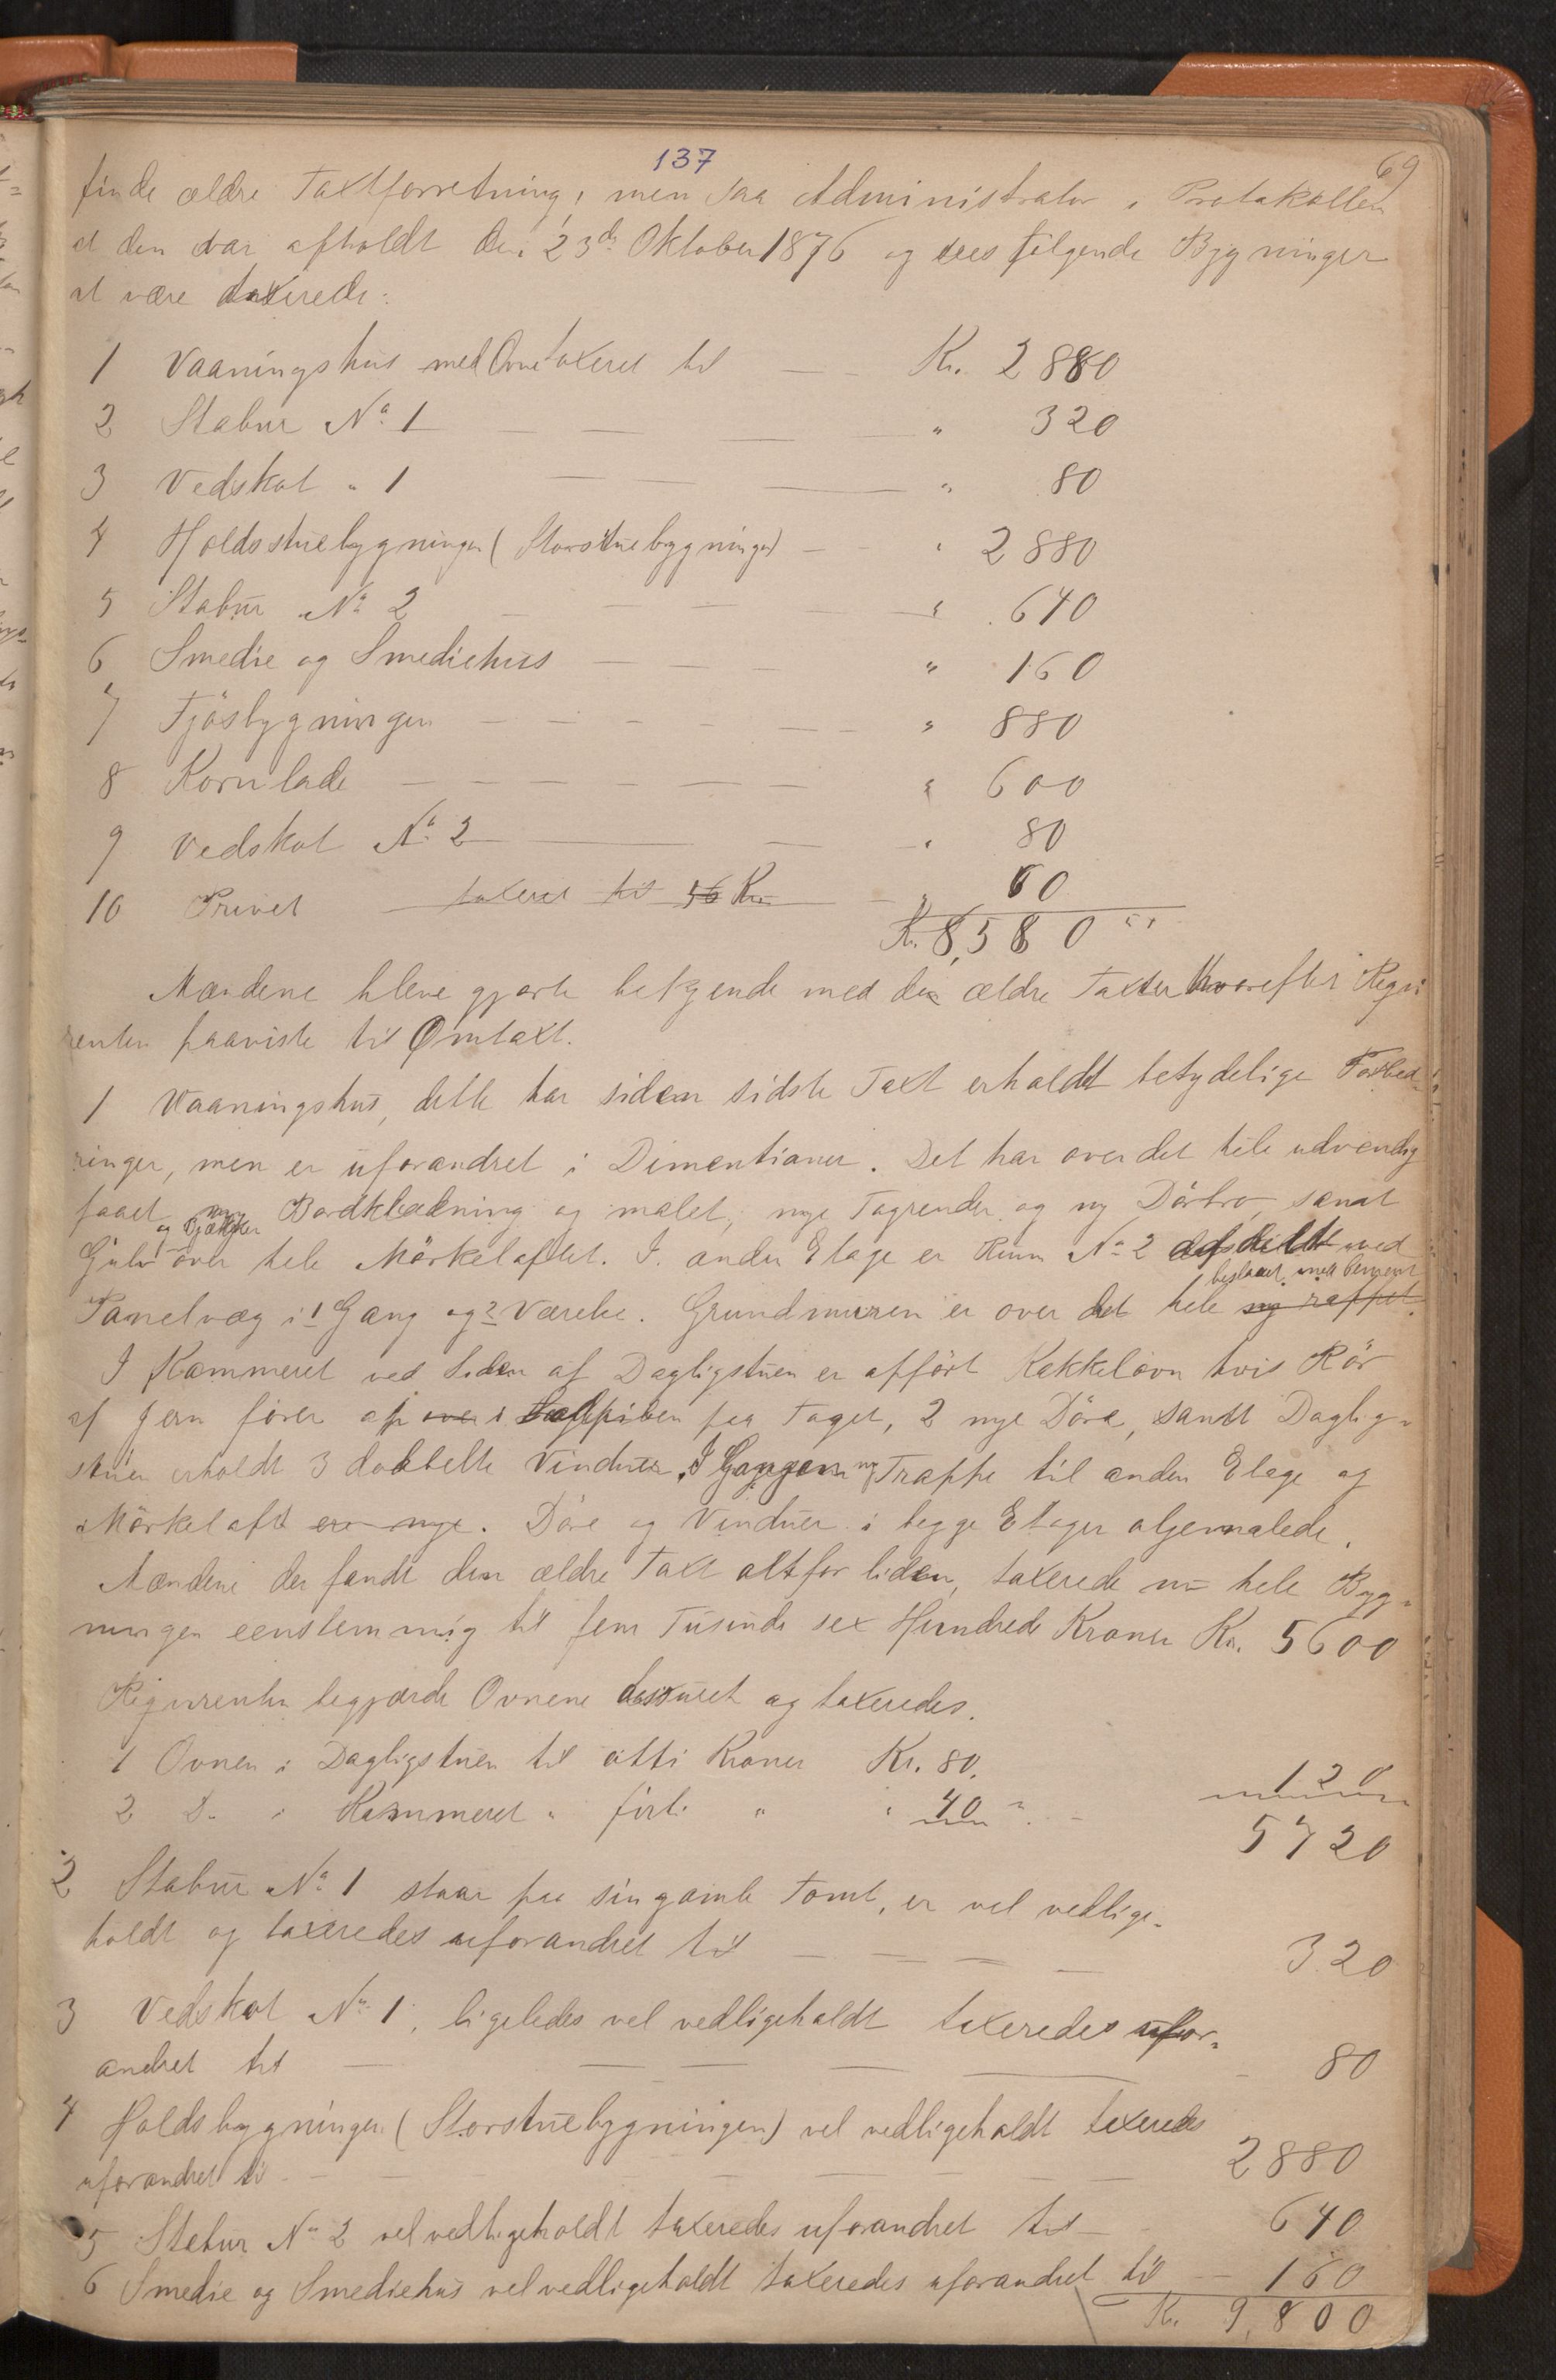 137
69
finde ældre Taxtforretning, men saa Administrator i Protokollen
at den var afholdt den 23de Oktober 1876 og sees følgende Bygninger
at være taxerede:
1 Vaaningshus med Ovne taxeret til — — Kr. 2880
2 Stabur No 1 — — — — " 320
3 Vedskot " 1 — — — " 80
4 Holdsstuebygningen (Storstuebygningen) — — " 2880
5 Stabur No 2 — — — — " 640
6 Smedie og Smediehus — — — " 160
7 Fjösbygningen — — — — — " 880
8 Kornlade — — — — — — " 600
9 Vedskot No 2 — — — " 80
10 Privet — taxeret til 56 Kr. — " 60
Kr. 8,580 "
Mændene bleve gjorte bekjendte med den ældre Taxt hvorefter Reqvi
renten paaviste til Omtaxt.
1 Vaaningshus, dette har siden sidste Taxt erholdt betydelige Forbed-
ringer, men er uforandret i Dimentioner. Det har over det hele udvendig
faaet ny Bordklædning og malet, nye Tagrender og ny Dörbro, samt
og Bjælker
Gulv over hele Mörkeloftet. I anden Etage er Rum No 2 afdeelt med
beslaaet med Cement
Panelvæg i 1 Gang og 2 Værelse. Grundmuren er over det hele ny rappet.
I Kammeret ved Siden af Dagligstuen er opfört Kakkelovn hvis Rör
af Jern förer op over i paa Taget, 2 nye Döre, samt Daglig-
stuen erholdt 3 dobbelte Vinduer. I Gangen ny Trappe til anden Etage og
Mörkeloft ere nye. Döre og Vinduer i begge Etager oljemalede.
Mændene der fandt den ældre Taxt altfor liden, taxerede nu hele Byg-
ningen eenstemmig til fem Tusinde sex Hundrede Kroner Kr. 5600
Reqvirenten begjærde Ovnene besigtiget og taxeredes.
1 Ovnen i Dagligstuen til otti Kroner Kr. 80.
2 Do i Kammeret " firti " " 40 " — 120
5720
2 Stabur No 1 staar paa sin gamle Tomt, er vel vedlige-
holdt og taxeredes uforandret til — — — — 320
3 Vedskot No 1, ligeledes vel vedligeholdt taxeredes ufor-
andret til — — — — — 80
4 Holdsbygningen (Storstuebygningen) vel vedligeholdt taxeredes
uforandret til — — — — — — 2880
5 Stabur No 2 vel vedligeholdt taxeredes uforandret til — 640
6 Smedie og Smediehus vel vedligeholdt taxeredes uforandret til — 160
Kr. 9,800